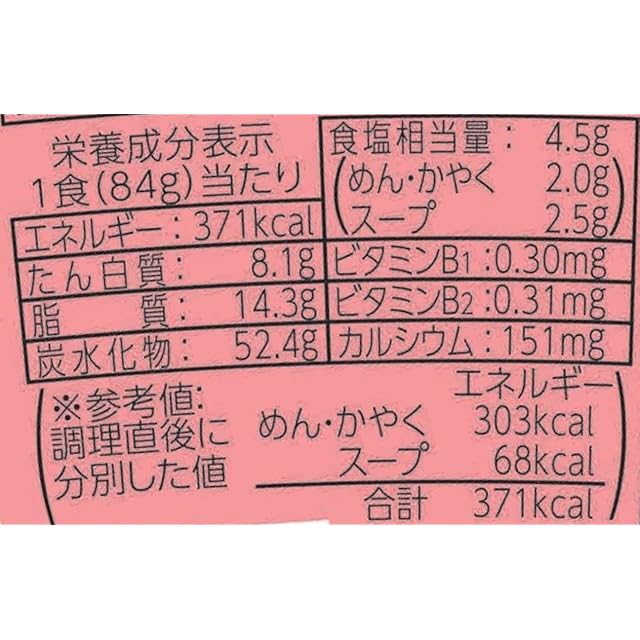 栄養成分表示
1食(84g)当たり
エネルギー:371kcal
たん白質: 8.1g
脂 質: 14.3g
炭水化物: 52.4g
食塩相当量: 4.5g
(めん・かやく 2.0g
スープ 2.5g)
ビタミンB1:0.30mg
ビタミンB2:0.31mg
カルシウム:151mg
(※参考値:
調理直後に
分別した値
エネルギー
めん・かやく 303kcal
スープ 68kcal
合計 371kcal)